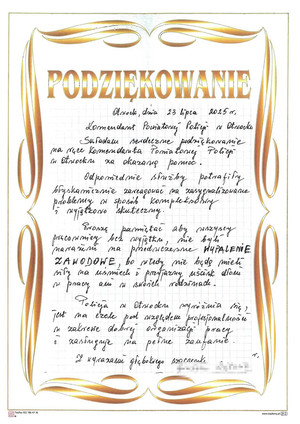 PODZIĘKOWANIE
Otwock, dnia 23 lipca 2025 r.
Komendant Powiatowy Policji w Otwocku
Składam serdeczne podziękowanie
na ręce Komendanta Powiatowej Policji
w Otwocku za okazaną pomoc.
Odpowiednie służby potrafiły
błyskawicznie zareagować na zasygnalizowane
problemy w sposób kompleksowy
i wyjątkowo skuteczny.
Proszę pamiętać aby wszyscy
pracownicy bez wyjątku, nie byli
narażeni na przedwczesne WYPALENIE
ZAWODOWE, bo wtedy nie będą mieli
siły na uśmiech i przyjazny uścisk dłoni
w pracy ani w swoich rodzinach.
Policja w Otwocku wyróżnia się,
jest na czele pod względem profesjonalności
w zakresie dobrej organizacji pracy
i zasługuje na pełne zaufanie.
Z wyrazami głębokiego szacunku